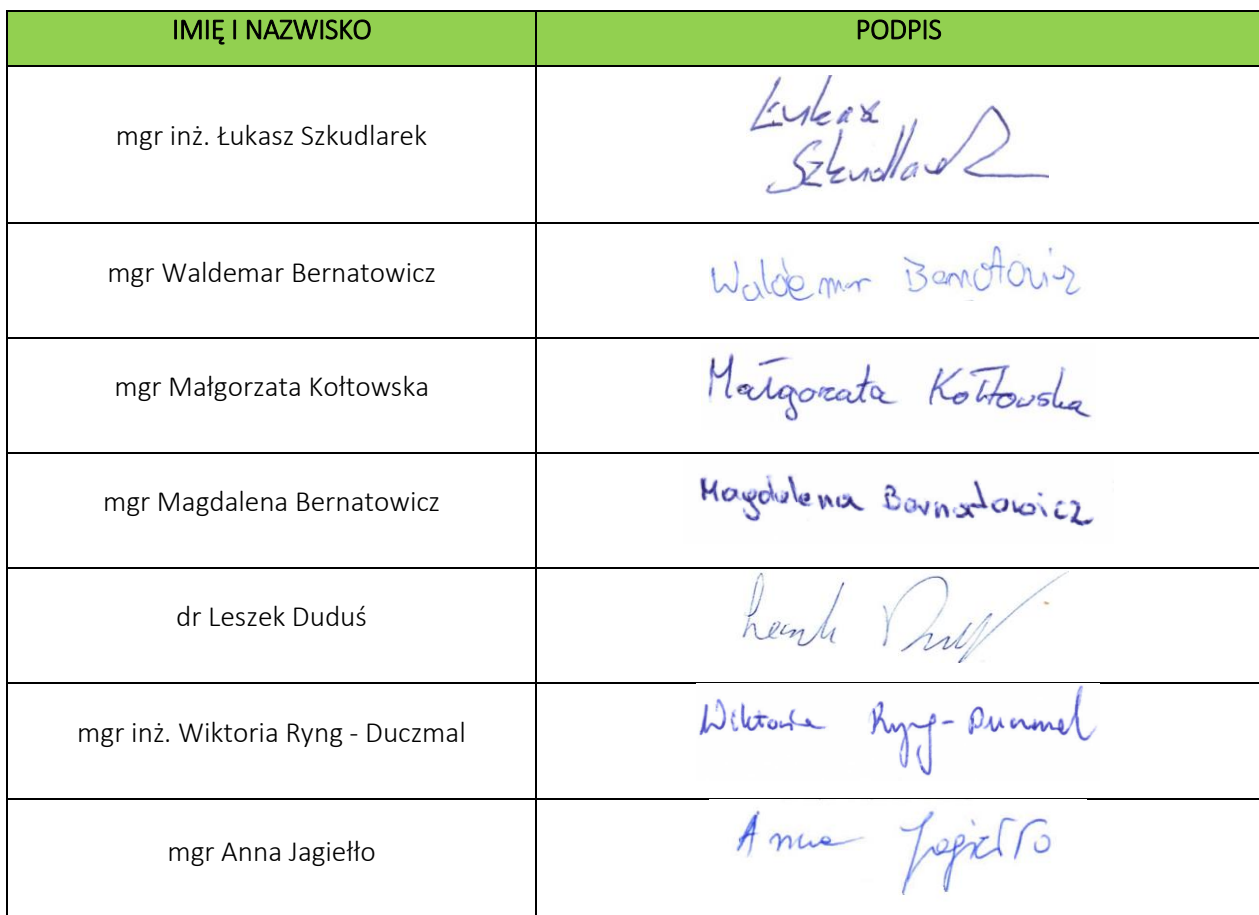 IMIĘ I NAZWISKO PODPIS
mgr inż. Łukasz Szkudlarek Łukasz
Szkudlarek
mgr Waldemar Bernatowicz Waldemar Bernatowicz
mgr Małgorzata Kołtowska Małgorzata Kołtowska
mgr Magdalena Bernatowicz Magdalena Bernatowicz
dr Leszek Duduś
mgr inż. Wiktoria Ryng - Duczmal Wiktoria Ryng-Duczmal
mgr Anna Jagiełło Anna Jagiełło